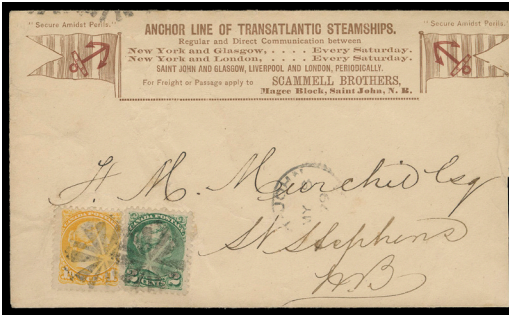 "Secure Amidst Perils."
ANCHOR LINE OF TRANSATLANTIC STEAMSHIPS.
"Secure Amidst Perils."
Regular and Direct Communication between
New York and Glasgow, . . . . Every Saturday.
New York and London, . . . . Every Saturday.
SAINT JOHN AND GLASGOW, LIVERPOOL AND LONDON, PERIODICALLY.
For Freight or Passage apply to SCAMMELL BROTHERS,
Magee Block, Saint John, N. B.
H. M. Murchie Esq
St Stephens
N B
CANADA POSTAGE
2 CENTS 2